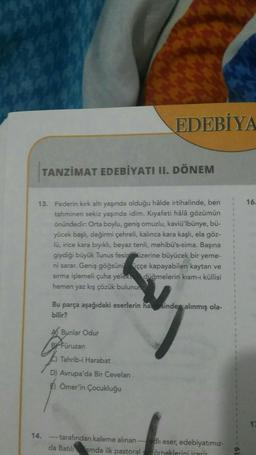 EDEBİYA
TANZİMAT EDEBİYATI II. DÖNEM
13. Pederin kırk altı yaşında olduğu hâlde irtihalinde, ben
tahminen sekiz yaşında idim. Kıyafeti hâlâ gözümün
önündedir: Orta boylu, geniş omuzlu, kaviü'lbünye, bü-
yücek başlı, değirmi çehreli, kalınca kara kaşlı, ela göz-
lü, ince kara bıyıklı, beyaz tenli, mehibü's-sima. Başına
giydiği büyük Tunus fesi üzerine büyücek bir yeme-
ni sarar. Geniş göğsünü iççe kapayabilen kaytan ve
sırma işlemeli çuha düğmelerinin kısm-ı küllisi
hemen yaz kış çözük bulunur
Bu parça aşağıdaki eserlerin sinden alınmış ola-
bilir?
A) Bunlar Odur
B) Füruzan
C) Tahrib-i Harabat
D) Avrupa'da Bir Cevelan
E) Ömer'in Çocukluğu
14. ---- tarafından kaleme alınan ---- adlı eser, edebiyatımız-
da Batılı ilk pastoral örneklerini
16.